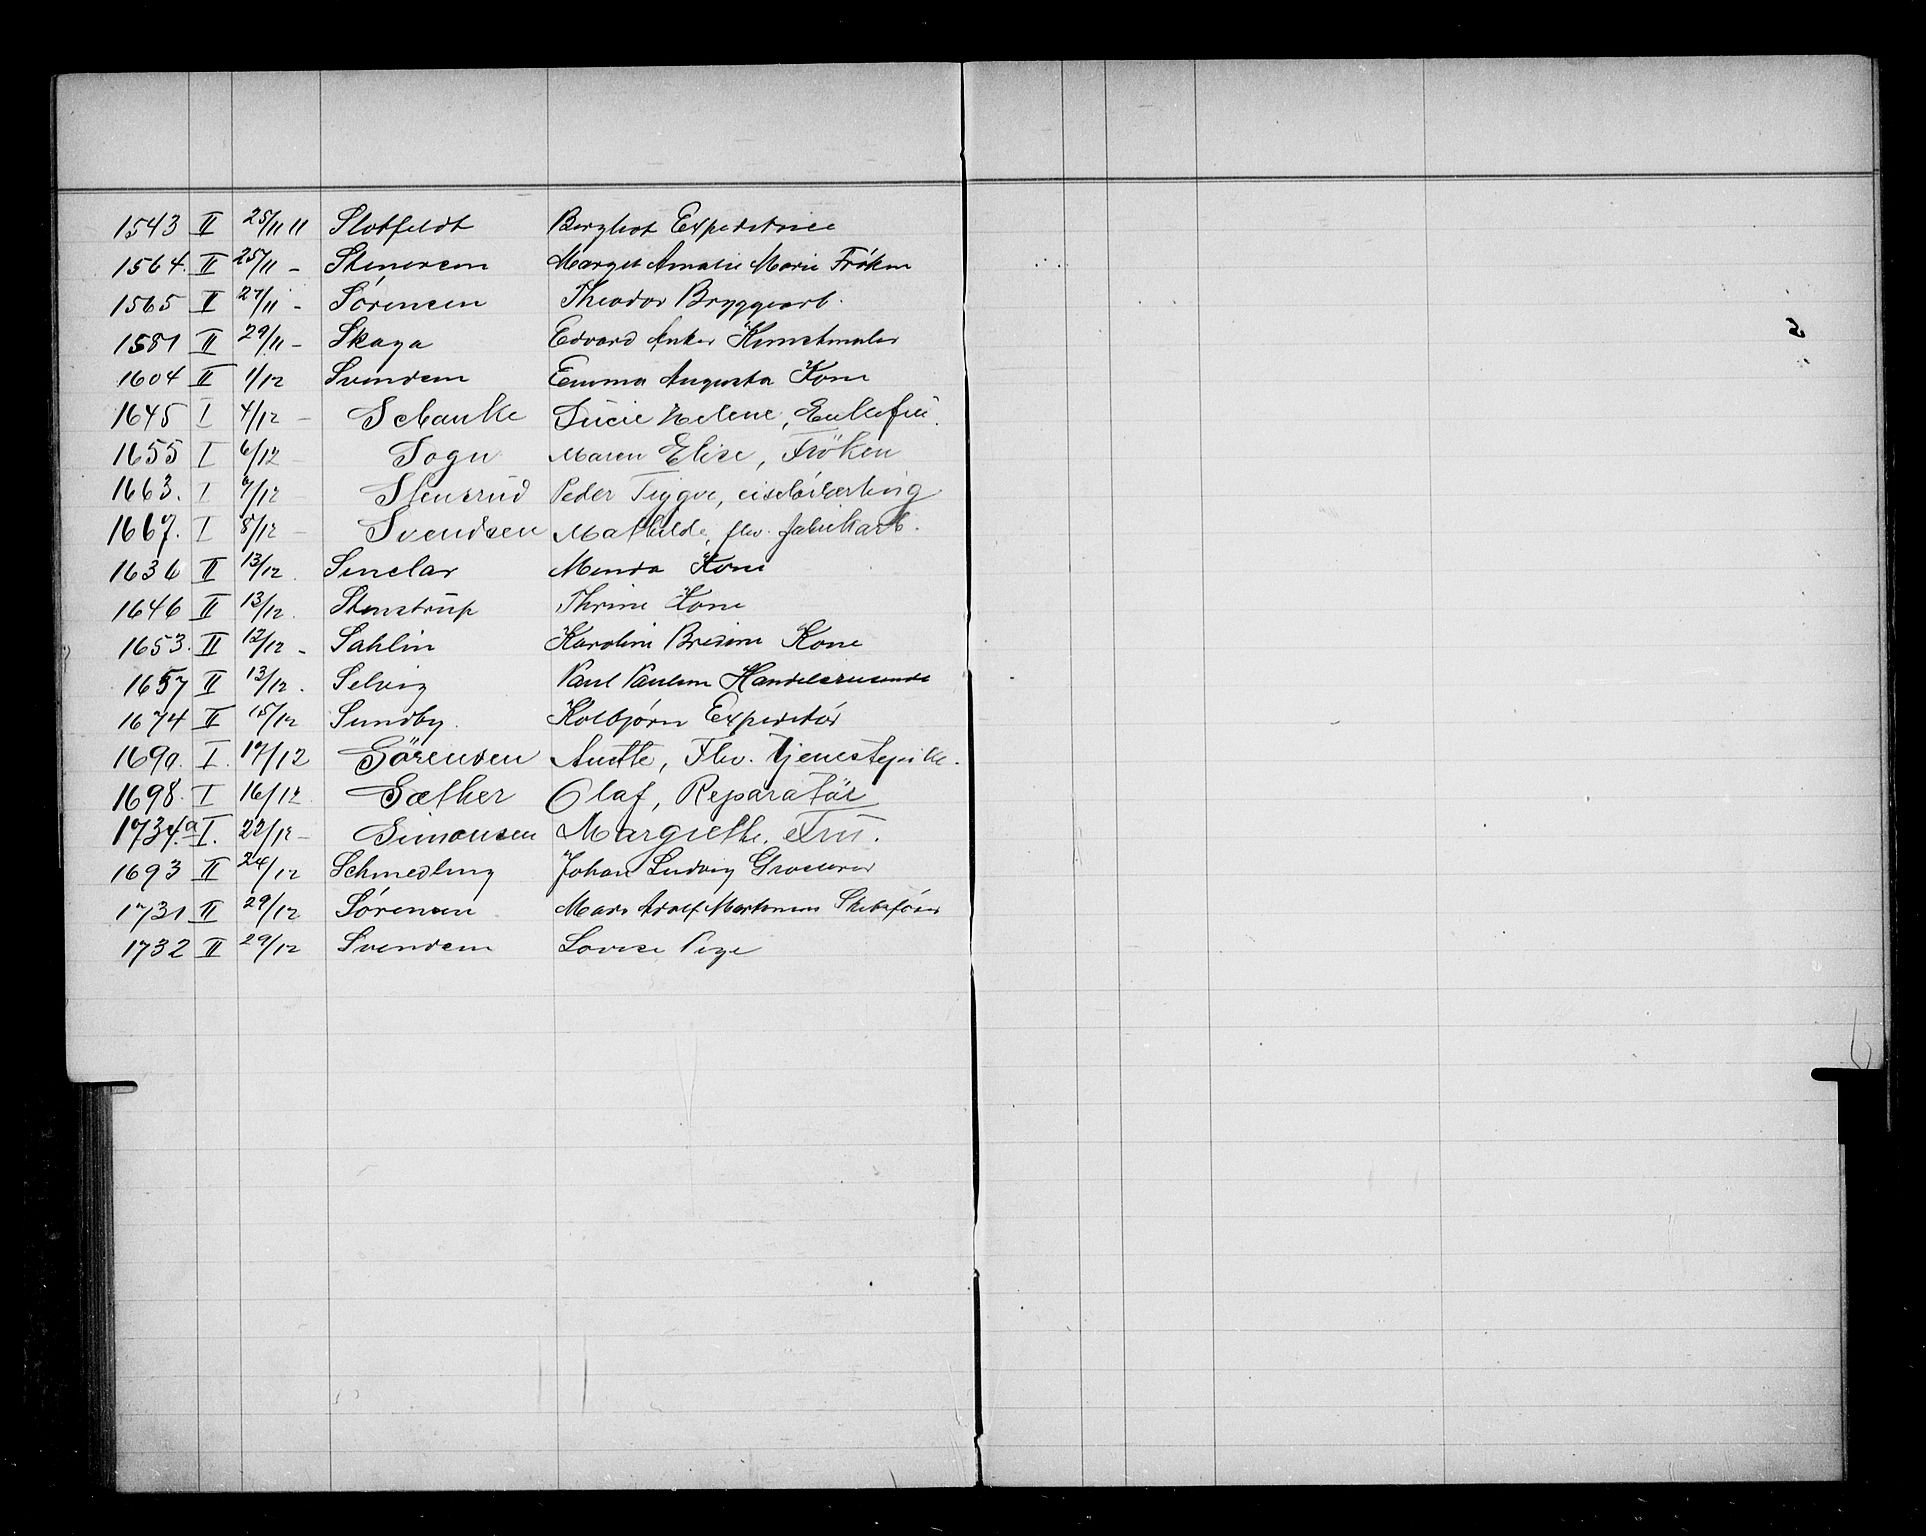 1543 II 25/11 11 Slotfeldt Bergliot Expeditrice
1564. II 25/11 - Stenersen Margit Amalie Marie Frøken
1565 II 27/11 - Sørensen Theodor Bryggearb.
1581 II 29/11 - Skaga Edvard Anker Kunstmaler
1604 II 1/12 Svendsen Emma Augusta Kone
1645 I 4/12 - Schanke Lucie Helene, Enkefru.
1655 I 6/12 - Sogn Maren Elise, Frøken
1663. I 7/12 - Stensrud Peder Trygve, ciselørlærling
1667. I 8/12 - Svendsen Mathilde, flv. fabrikarb.
1636 II 13/12. Sinclar Minda Kone
1646 II 13/12. Stenstrup Thrine Kone
1653. II 12/12 - Sahlin Karoline Bredine Kone
1657 II 13/12. Selvig Paul Paulsen Handelsreisende
1674 II 15/12 Sundby. Kolbjørn Expeditør
1690. I. 17/12 Sørensen Anette, Flv. Tjenestepike.
1698. I 16/12 Sæther Olaf, Reparatør
1734.a I. 22/12 - Simonsen Margrethe, Fru.
1693 II 24/12 Schmedling Johan Ludvig Grosserer
1731 II 29/12 Sørensen Mads Adolf Martinius
1732 II 29/12 Svendsen Lovise Pige